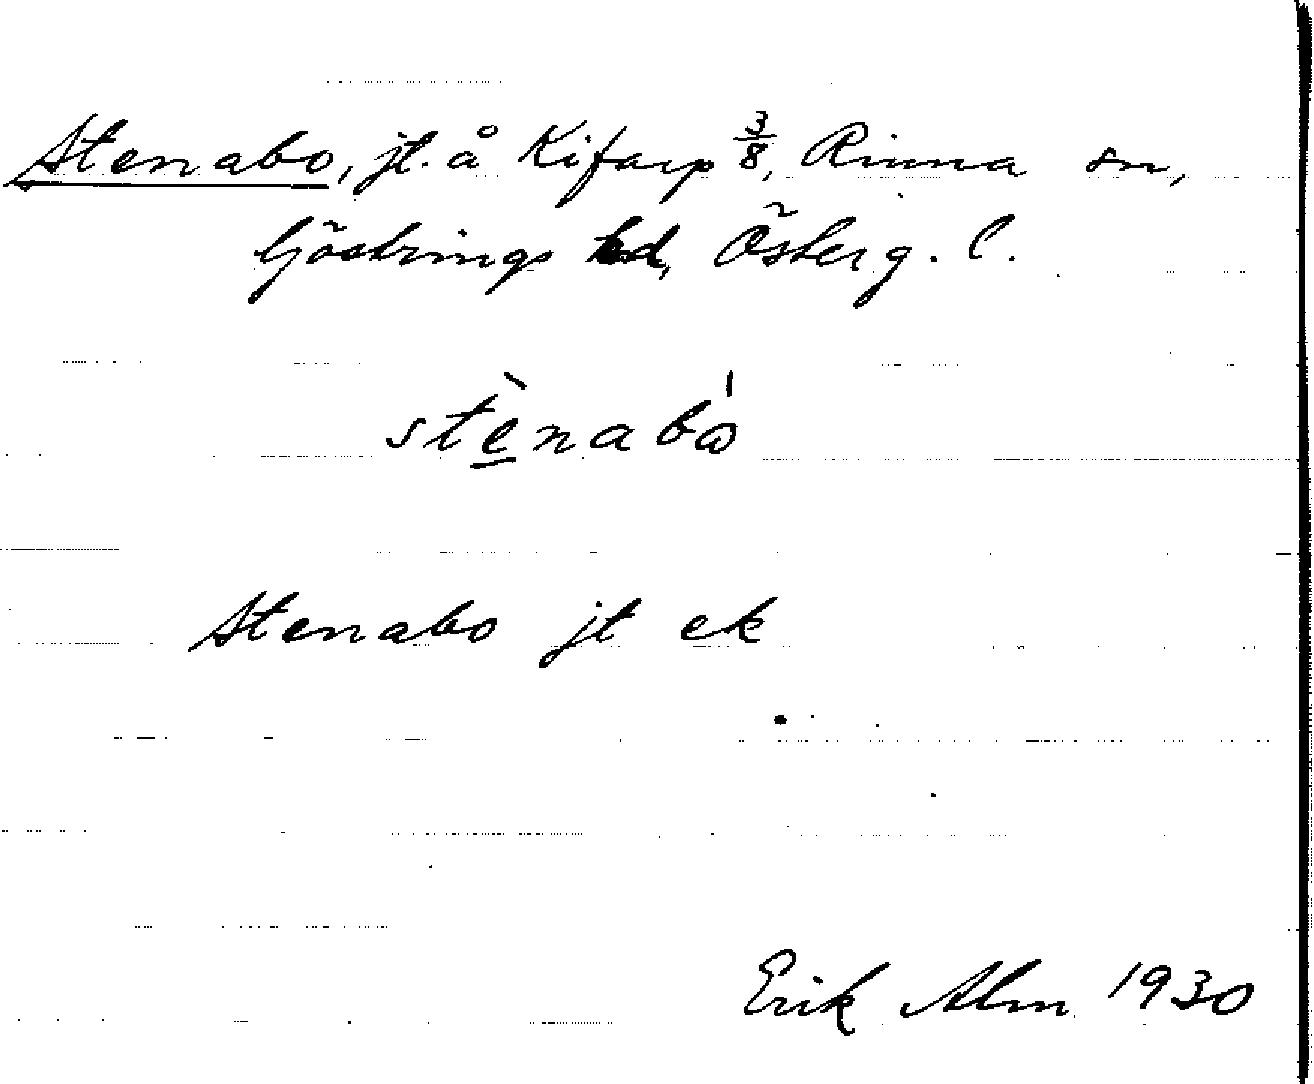 Stenabo, jt. å Kifarp 3/8, Rinna sn,
Göstrings hd, Österg. l.
stènabó
Stenabo jt ek
Erik Alm 1930